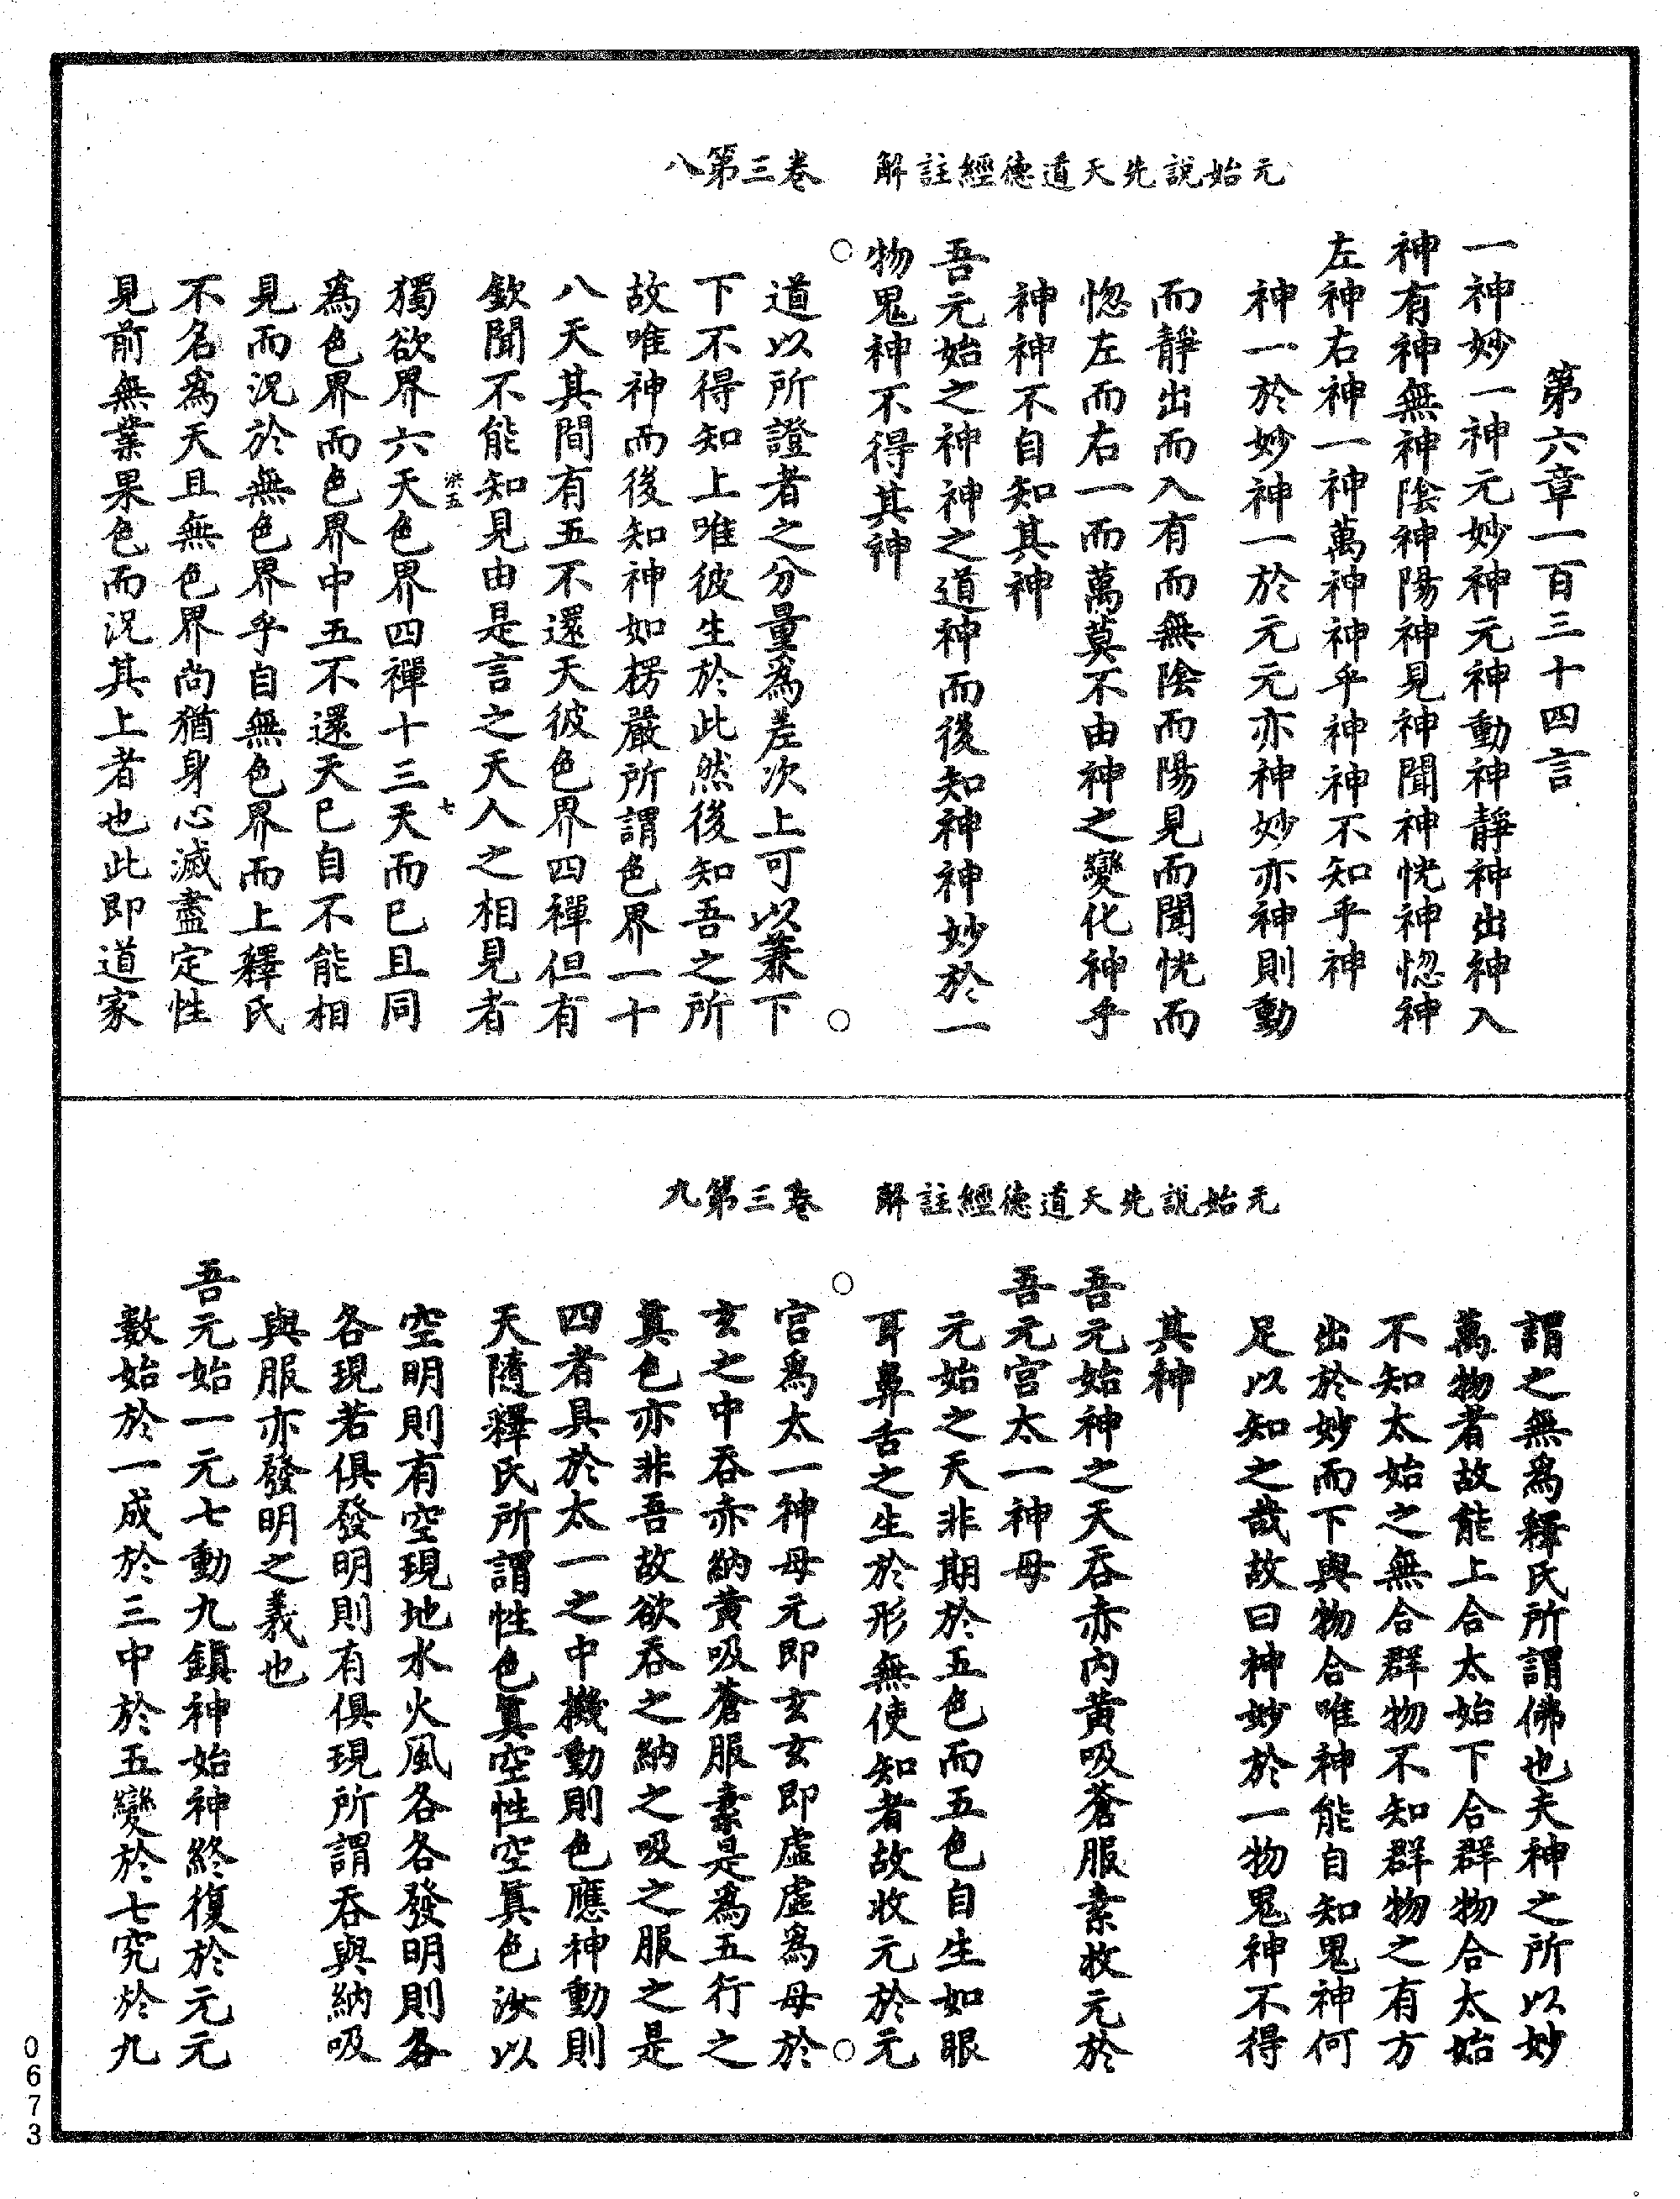 元始說先天道德經註解　卷三第八
第六章一百三十四言
一神妙一神元妙神元神動神靜神出神入
神有神無神陰神陽神見神聞神恍神惚神
左神右神一神萬神神乎神神不知乎神
神一於妙神一於元元亦神妙亦神則動
而靜出而入有而無陰而陽見而聞恍而
惚左而右一而萬莫不由神之變化神乎
神神不自知其神
吾元始之神神之道神而後知神神妙於一
物鬼神不得其神
○　○
道以所證者之分量爲差次上可以兼下
下不得知上唯彼生於此然後知吾之所
故唯神而後知神如楞嚴所謂色界一十
八天其間有五不還天彼色界四禪但有
欽聞不能知見由是言之天人之相見者
洪五　七
獨欲界六天色界四禪十三天而已且同
爲色界而色界中五不還天已自不能相
見而況於無色界乎自無色界而上釋氏
不名爲天且無色界尚猶身心滅盡定性
見前無業果色而況其上者也此即道家
元始說先天道德經註解　卷三第九
謂之無爲釋氏所謂佛也夫神之所以妙
萬物者故能上合太始下合群物合太始
不知太始之無合群物不知群物之有方
出於妙而下與物合唯神能自知鬼神何
足以知之哉故曰神妙於一物鬼神不得
其神
吾元始神之天吞赤内黃吸蒼服素收元於
吾元宮太一神母
元始之天非期於五色而五色自生如眼
耳鼻舌之生於形無使知者故收元於元
○　○
宮爲太一神母元即玄玄即虛虛爲母於
玄之中吞赤納黃吸蒼服素是爲五行之
眞色亦非吾故欲吞之納之吸之服之是
四者具於太一之中機動則色應神動則
天隨釋氏所謂性色眞空性空眞色汝以
空明則有空現地水火風各各發明則各
各現若俱發明則有俱現所謂吞與納吸
與服亦發明之義也
吾元始一元七動九鎮神始神終復於元元
數始於一成於三中於五變於七究於九
0673